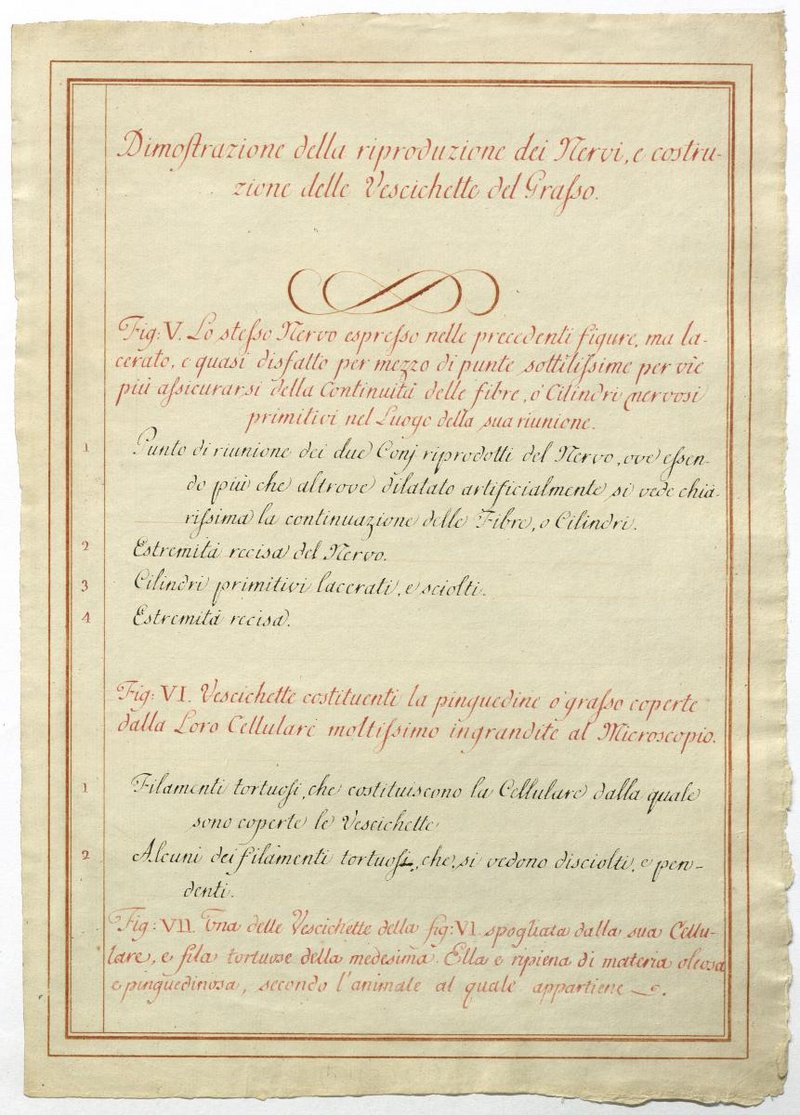 Dimoſtrazione della riproduzione dei Nervi, e costru-
zione delle Vescichette del Graſso.
Fig: V. Lo steſso Nervo espresso nelle precedenti figure, ma la-
cerato, e quasi disfatto per mezzo di punte sottiliſsime per vie
più aſsicurarsi della Continuità delle fibre, o' Cilindri nervosi
primitivi nel Luogo della sua riunione.
1 Punto di riunione dei due Conj riprodotti del Nervo, ove eſsen-
do più che altrove dilatato artificialmente si vede chia-
riſsima la continuazione delle Fibre, o Cilindri.
2 Estremità recisa del Nervo.
3 Cilindri primitivi lacerati, e sciolti.
4 Estremità recisa.
Fig: VI. Vescichette costituenti la pinguedine o' graſso coperte
dalla Loro Cellulare moltiſsimo ingrandite al Microscopio.
1 Filamenti tortuoſi, che costituiscono la Cellulare dalla quale
sono coperte le Vescichette
2 Alcuni dei filamenti tortuoſi, che si vedono disciolti, e pen-
denti.
Fig: VII. Una delle Vescichette della fig: VI spogliata dalla sua Cellu-
lare, e fila tortuose della medesima. Ella e ripiena di materia oleosa
e pinguedinosa, secondo l'animale al quale appartiene.